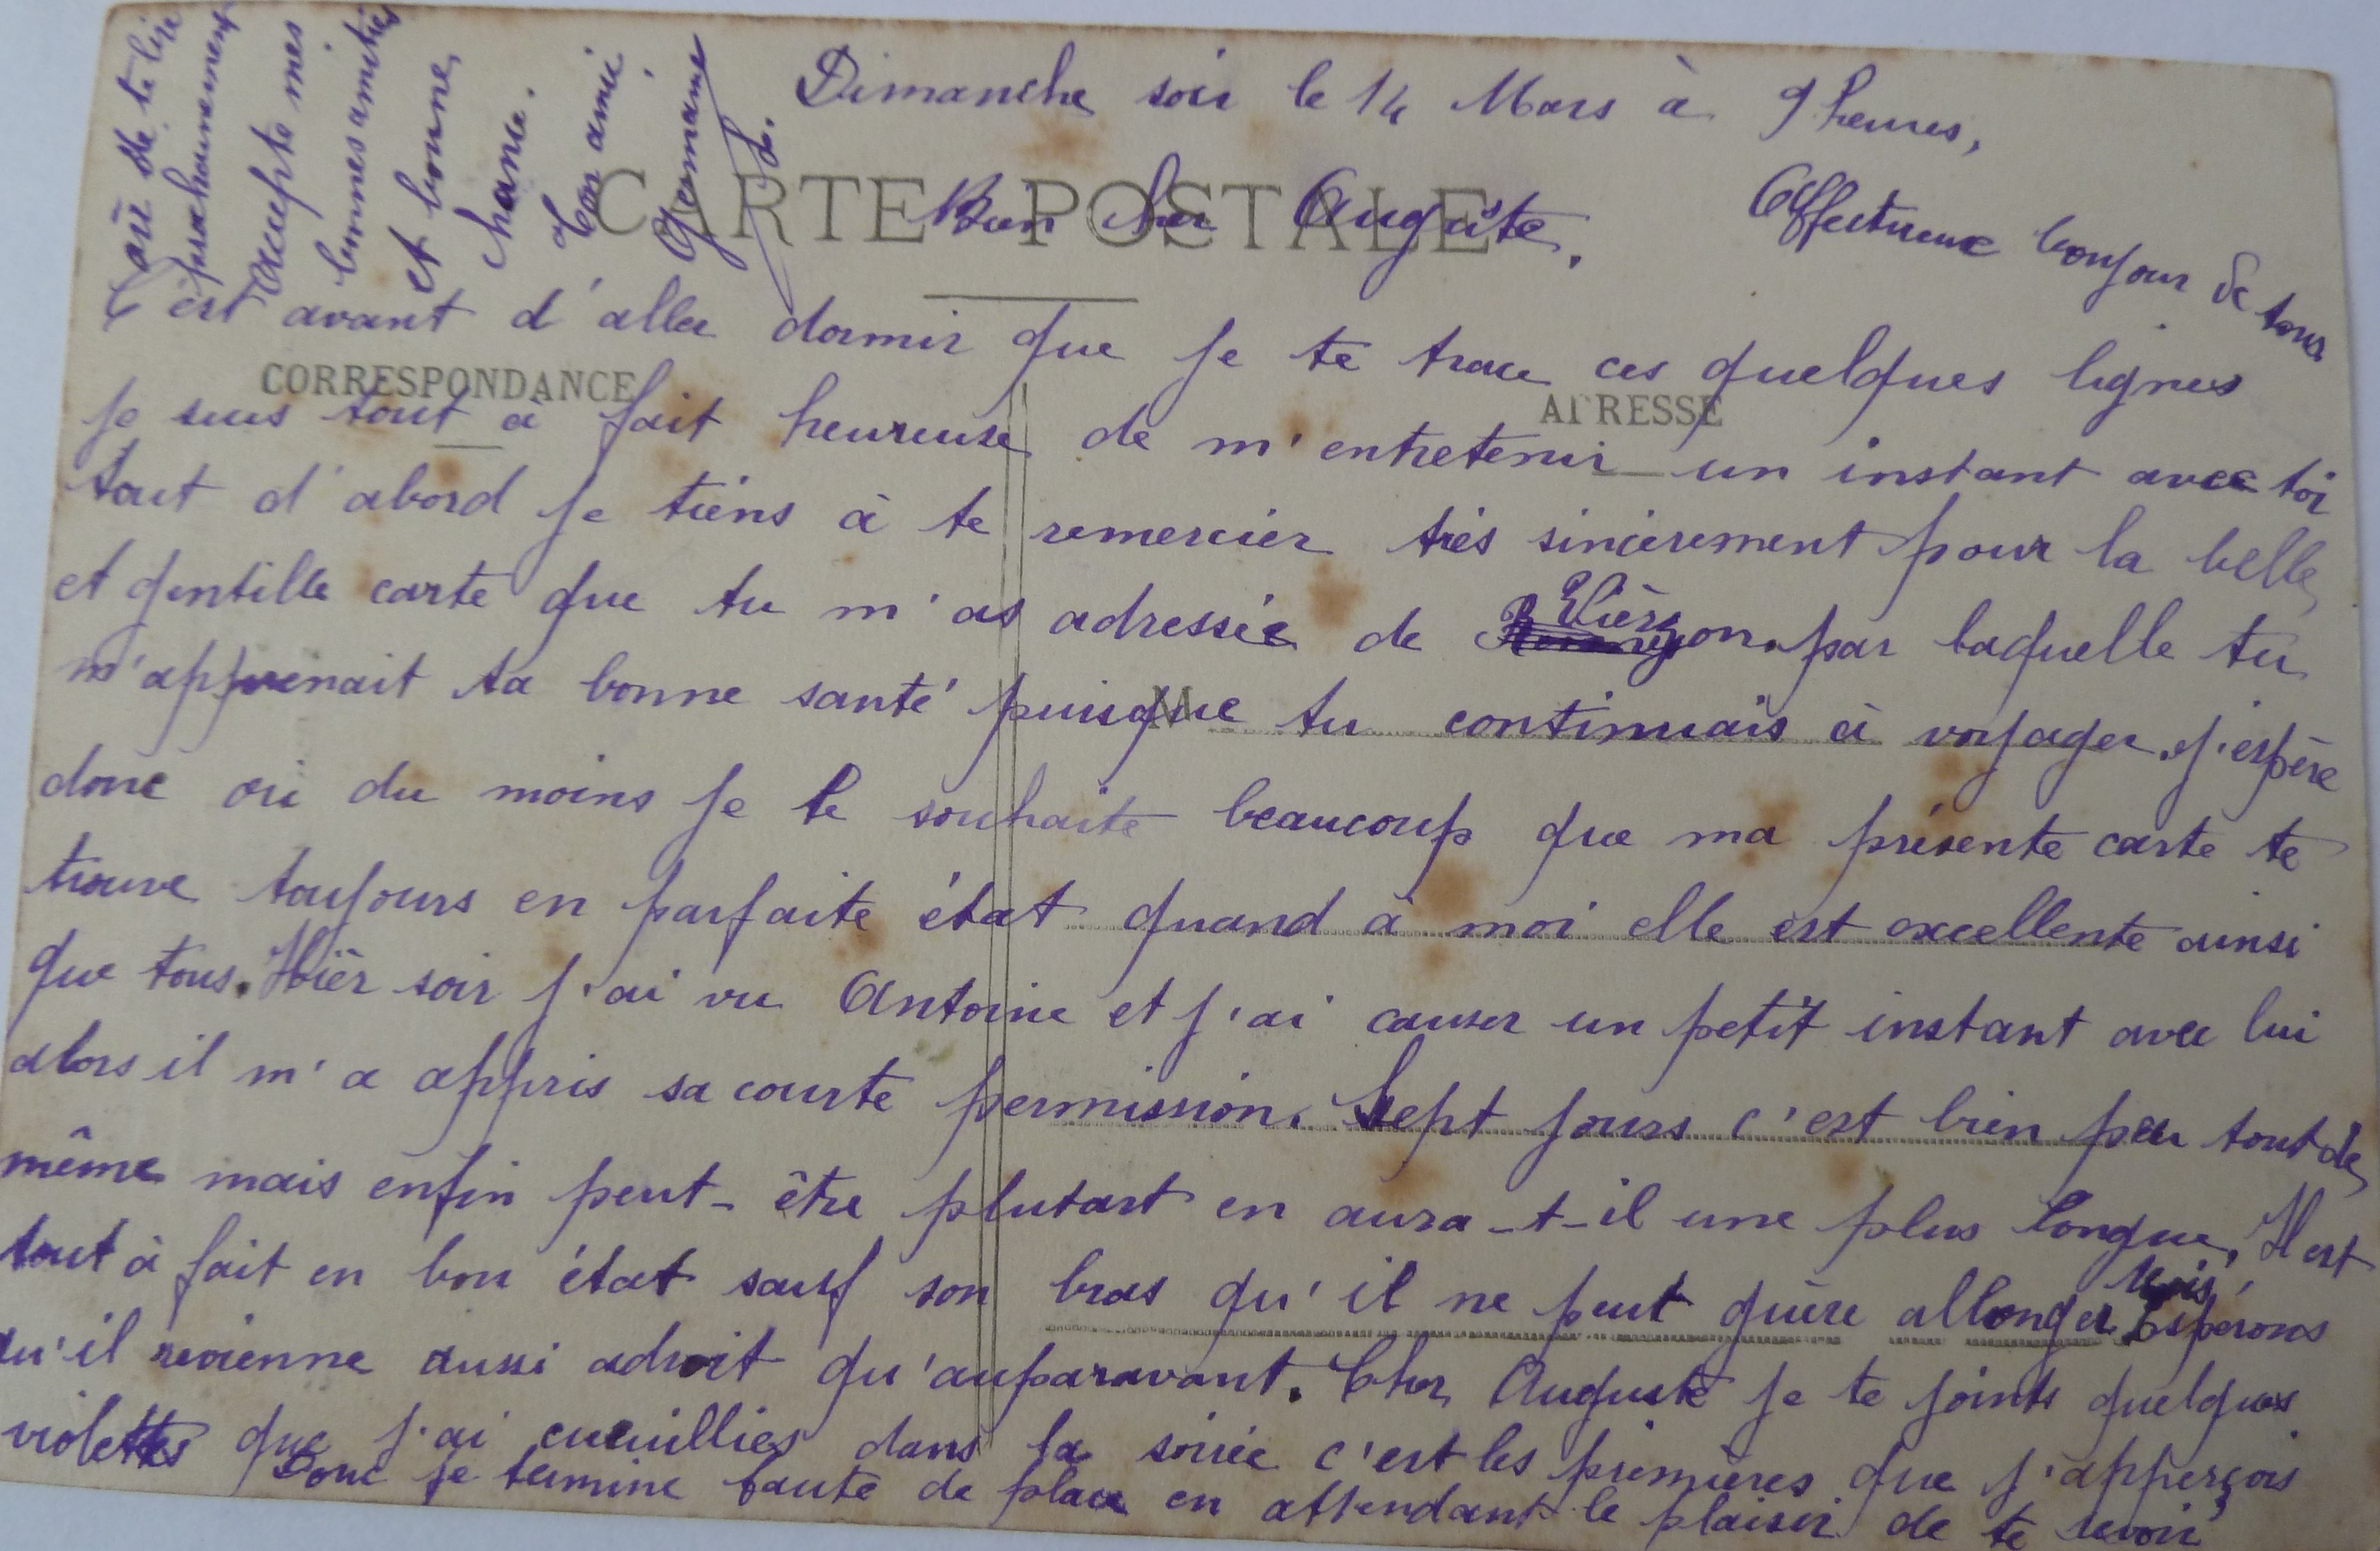 Dimanche soir le 14 Mars à 9 heures,
CARTE POSTALE
Bien cher Auguste,
Affectueux bonjour de tous
C'est avant d'aller dormir que je te trace ces quelques lignes
CORRESPONDANCE
ADRESSE
je suis tout à fait heureuse de m'entretenir un instant avec toi
tout d'abord je tiens à te remercier très sincèrement pour la belle
et gentille carte que tu m'as adressée de Vièrzon. par laquelle tu
m'apprenait ta bonne santé puisque tu continuais à voyager. j'espère
M
donc ou du moins je le souhaite beaucoup que ma présente carte te
trouve toujours en parfaite état quand à moi elle est excellente ainsi
que tous. Hièr soir j'ai vu Antoine et j'ai causer un petit instant avec lui
alors il m'a appris sa courte permission. Sept jours c'est bien peu tout de
même mais enfin peut-être plutart en aura-t-il une plus longue. Il est
tout à fait en bon état sauf son bras qu'il ne peut guère allonger mais, Espérons
qu'il revienne aussi adroit qu'auparavant. Cher Auguste je te joints quelques
violettes que j'ai cueuillies dans la soirée c'est les premières que j'apperçois
Donc je termine faute de place en attendant le plaisir de te revoir
ou de te lire
prochainement
Accepte mes
bonnes amitiés
et bonne
chance.
Ton amie
Germaine